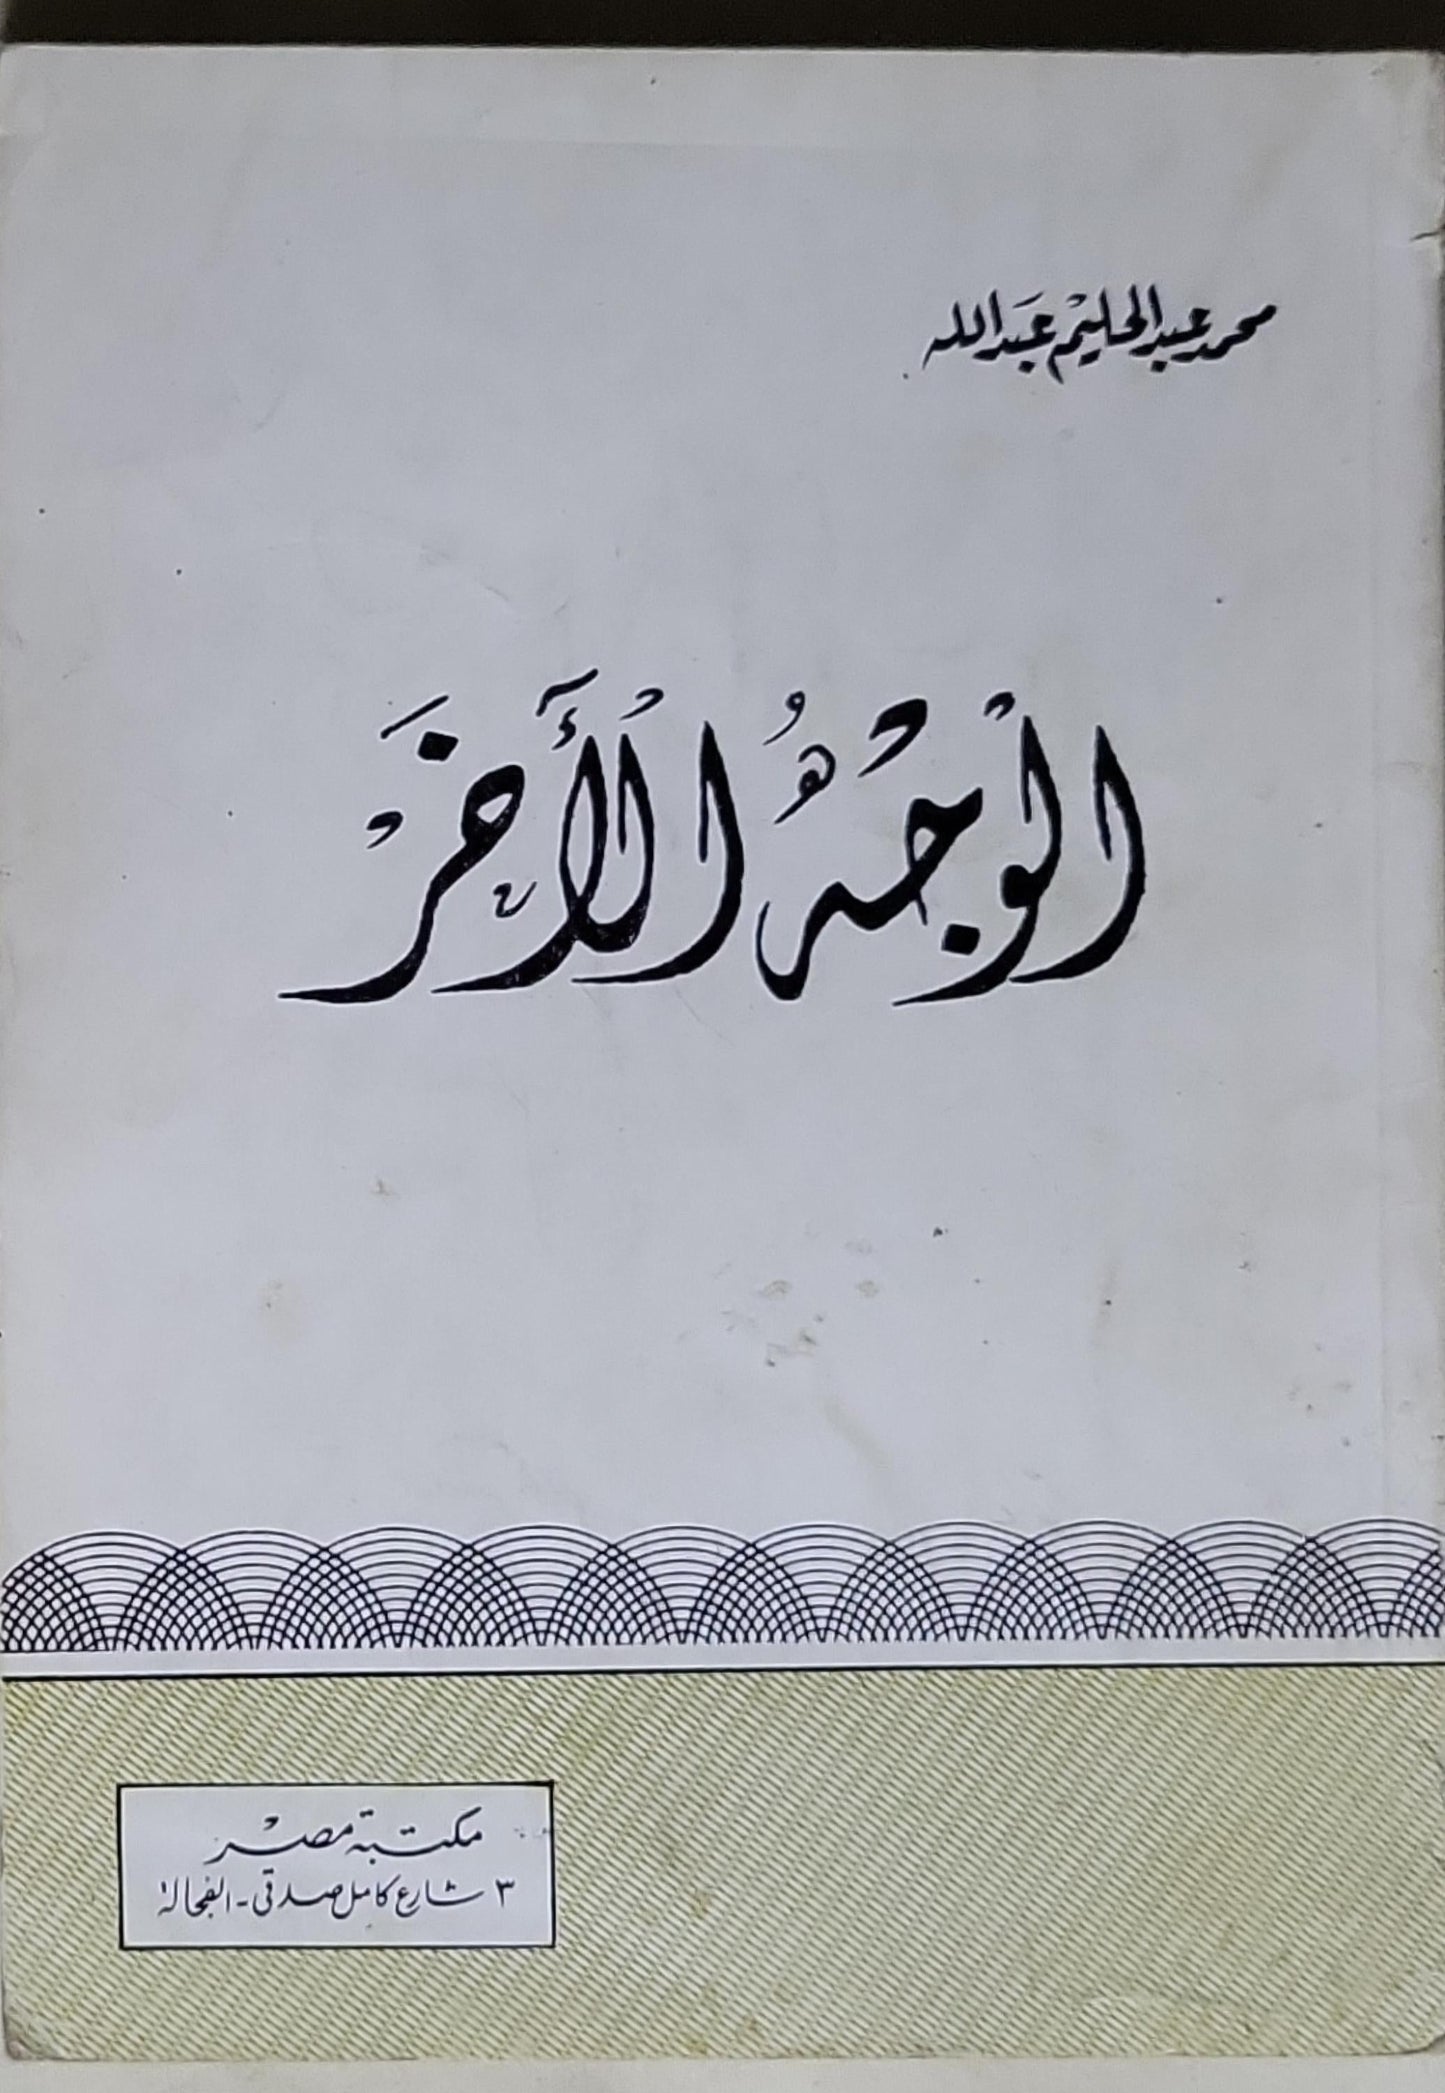 محمد عبد الحليم عبد الله
الوجه الآخر
مكتبة مصر
٣ شارع كامل صدقى - الفجالة